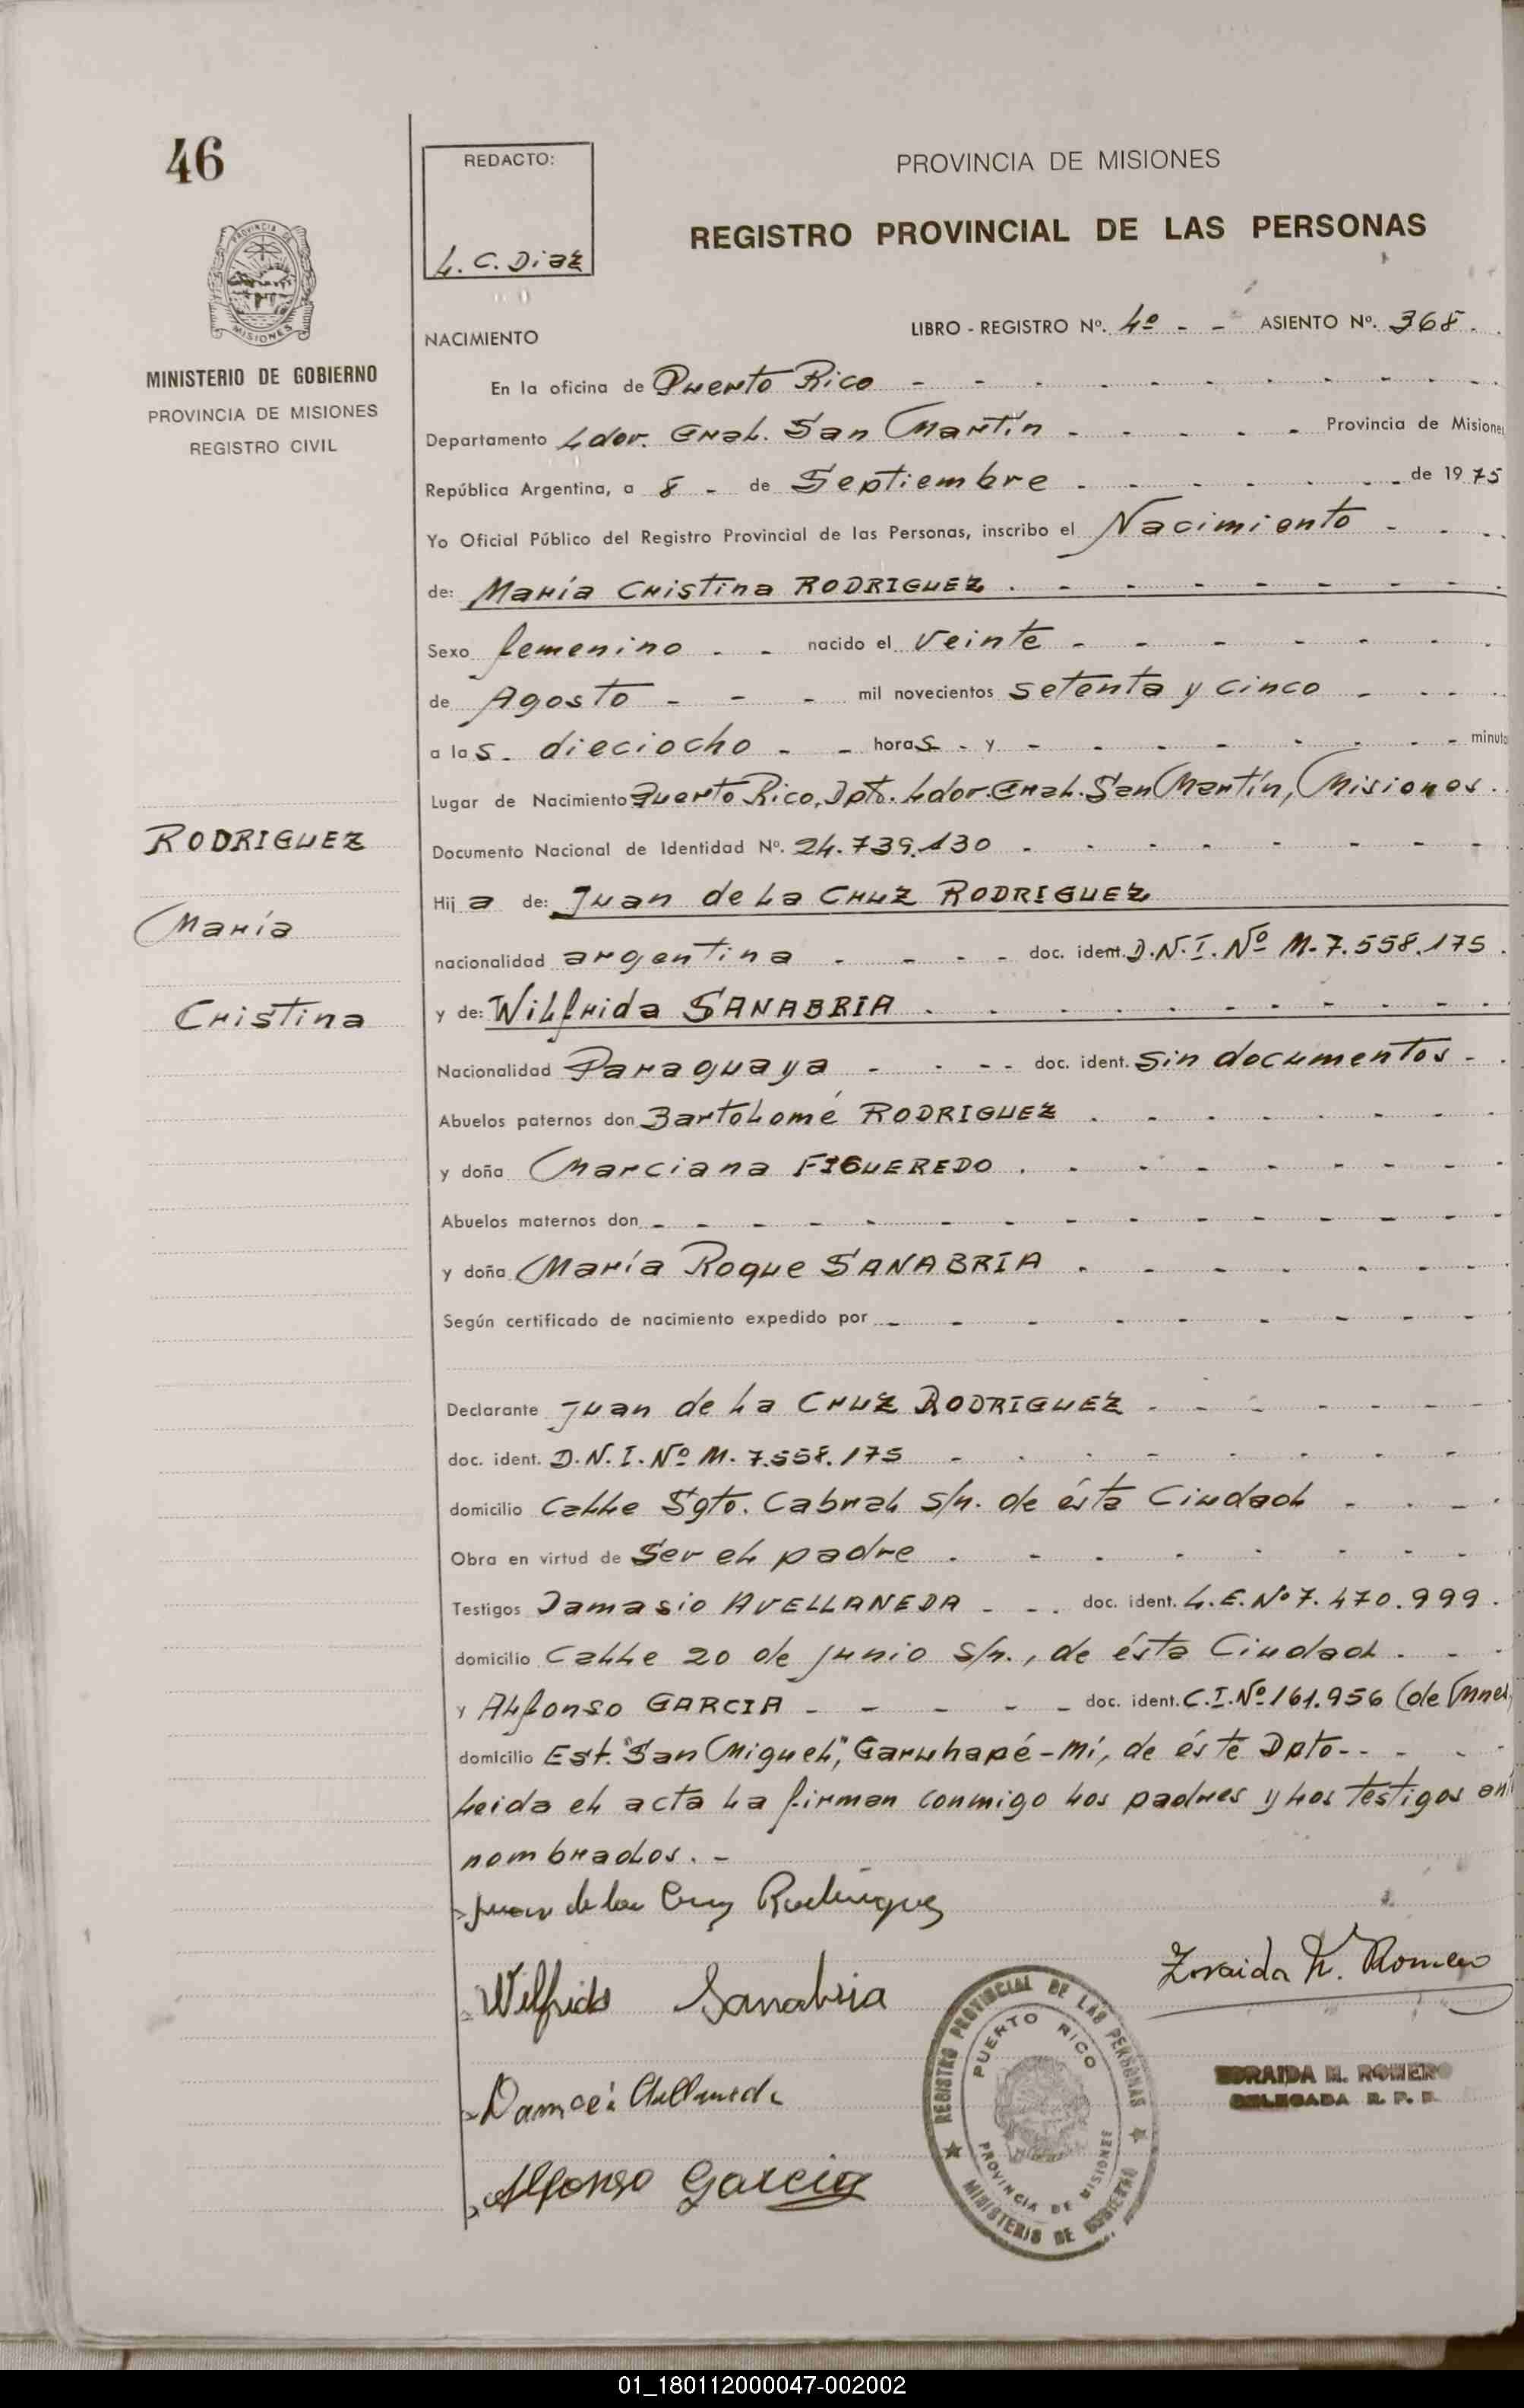 46
REDACTO:
L. C. Diaz
PROVINCIA DE MISIONES
REGISTRO PROVINCIAL DE LAS PERSONAS
PROVINCIA DE
MISIONES
MINISTERIO DE GOBIERNO
PROVINCIA DE MISIONES
REGISTRO CIVIL
NACIMIENTO
LIBRO - REGISTRO Nº. 4º - - ASIENTO Nº. 368.
En la oficina de Puerto Rico
Departamento Ldor. Gral. San Martín - Provincia de Misiones
República Argentina, a 8 - de Septiembre - de 1975
Yo Oficial Público del Registro Provincial de las Personas, inscribo el Nacimiento
de: María Cristina RODRIGUEZ
Sexo femenino - - nacido el veinte
de Agosto - - - mil novecientos setenta y cinco
a las - dieciocho - - horas - y - minuto
Lugar de Nacimiento Puerto Rico, Dpto. Ldor. Gral. San Martín, Misiones.
Documento Nacional de Identidad Nº. 24.739.130
RODRIGUEZ
María
Cristina
Hija de: Juan de La Cruz RODRIGUEZ
nacionalidad argentina - - - - doc. ident. D.N.I. Nº M-7.558.175.
y de: Wilfrida SANABRIA
Nacionalidad Paraguaya - - - - doc. ident. sin documentos -
Abuelos paternos don Bartolomé RODRIGUEZ
y doña Marciana FIGUEREDO
Abuelos maternos don - - -
y doña María Roque SANABRIA
Según certificado de nacimiento expedido por - - -
Declarante Juan de La Cruz RODRIGUEZ
doc. ident. D.N.I. Nº M. 7.558.175
domicilio Calle Sgto. Cabral s/n. de ésta Ciudad
Obra en virtud de Ser el padre
Testigos Damasio AVELLANEDA - - . doc. ident. L.E. Nº 7.470.999.
domicilio Calle 20 de junio s/n., de ésta Ciudad
y Alfonso GARCIA - - - - - doc. ident. C.I. Nº 161.956 (de Mnes.
domicilio Est. "San Miguel", Garuhapé-Mí, de éste Dpto--
Leida el acta la firman conmigo los padres y los testigos
nombrados. -
Juan de la Cruz Rodriguez
Wilfrida Sanabria
Alfonso Garcia
Zoraida M. Romero
REGISTRO PROVINCIAL DE LAS PERSONAS
PUERTO RICO
PROVINCIA DE MISIONES
MINISTERIO DE GOBIERNO
ZORAIDA M. ROMERO
DELEGADA R. P. P.
01_180112000047-002002